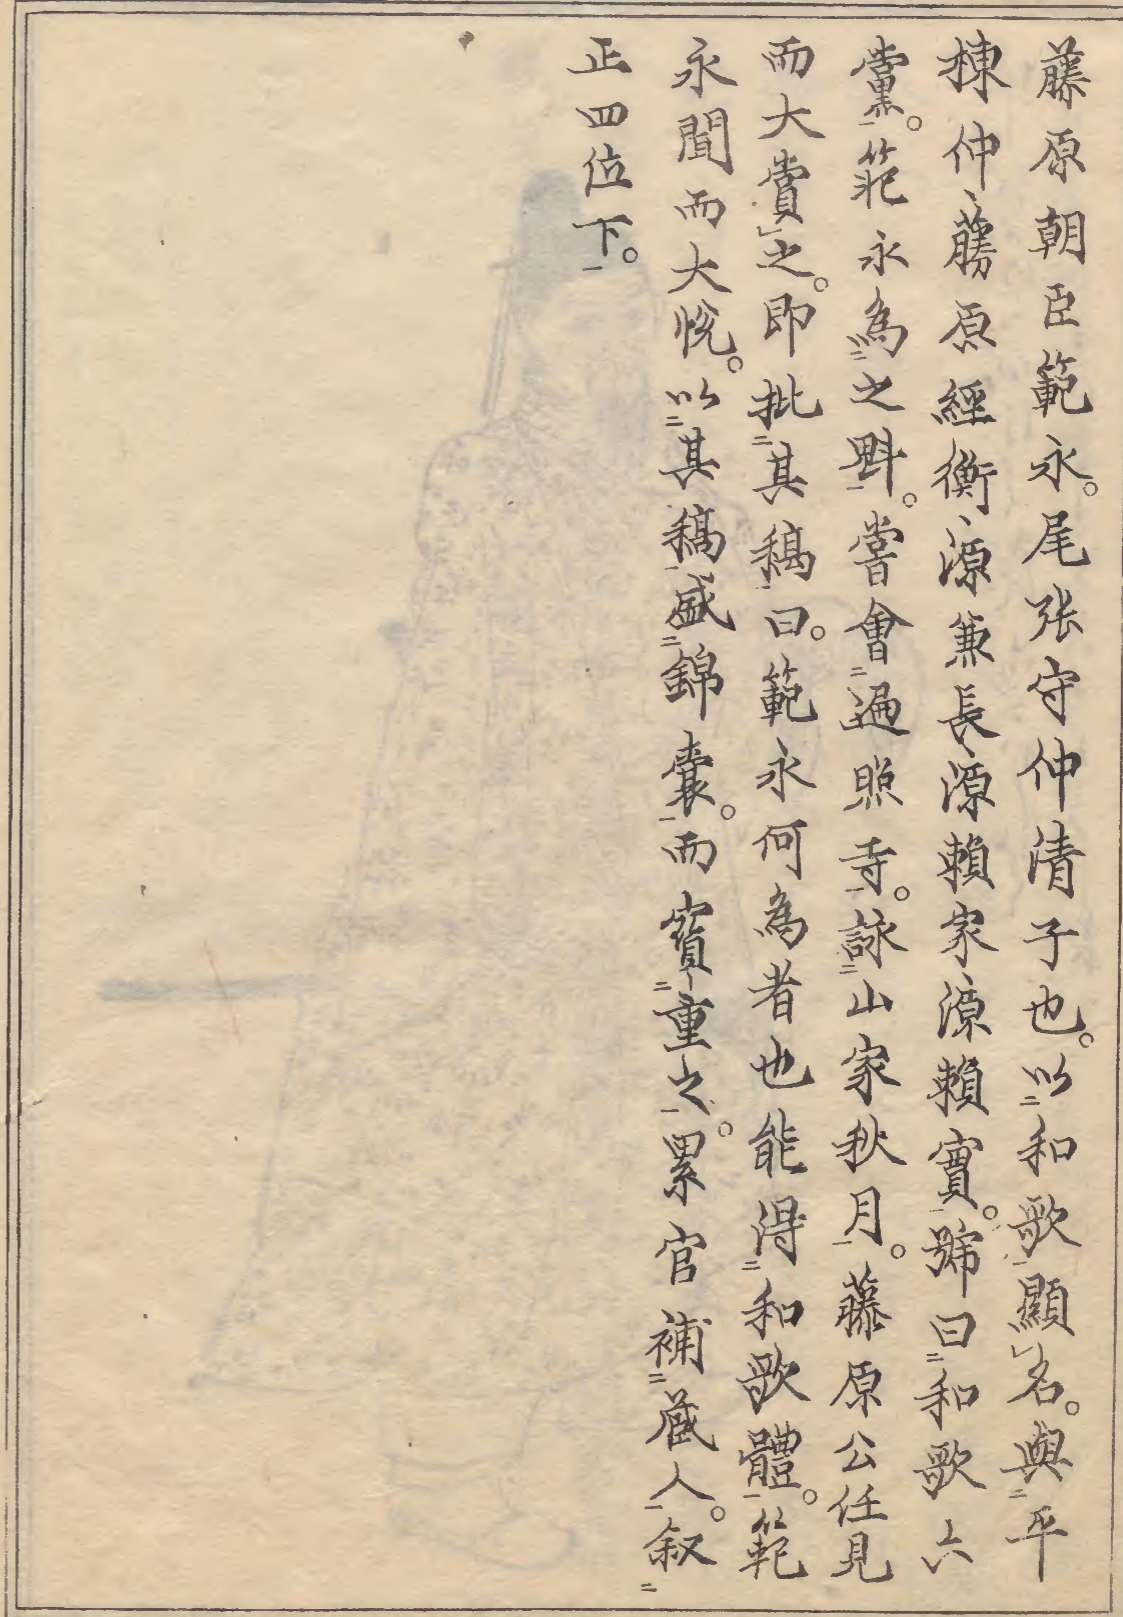 藤原朝臣範永。尾張守仲清子也。以和歌顯名。與平
棟仲、藤原經衡、源兼長、源賴家、源賴實。號曰和歌六
黨。範永為之魁。嘗會遍照寺。詠山家秋月。藤原公任見
而大賞之。即批其稿曰。範永何為者也能得和歌體。範
永聞而大悅。以其稿盛錦囊。而寶重之。累官補蔵人。叙
正四位下。